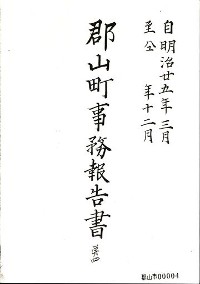 自明治廿五年三月
至仝 年十二月
郡山町事務報告書
郡山市00004